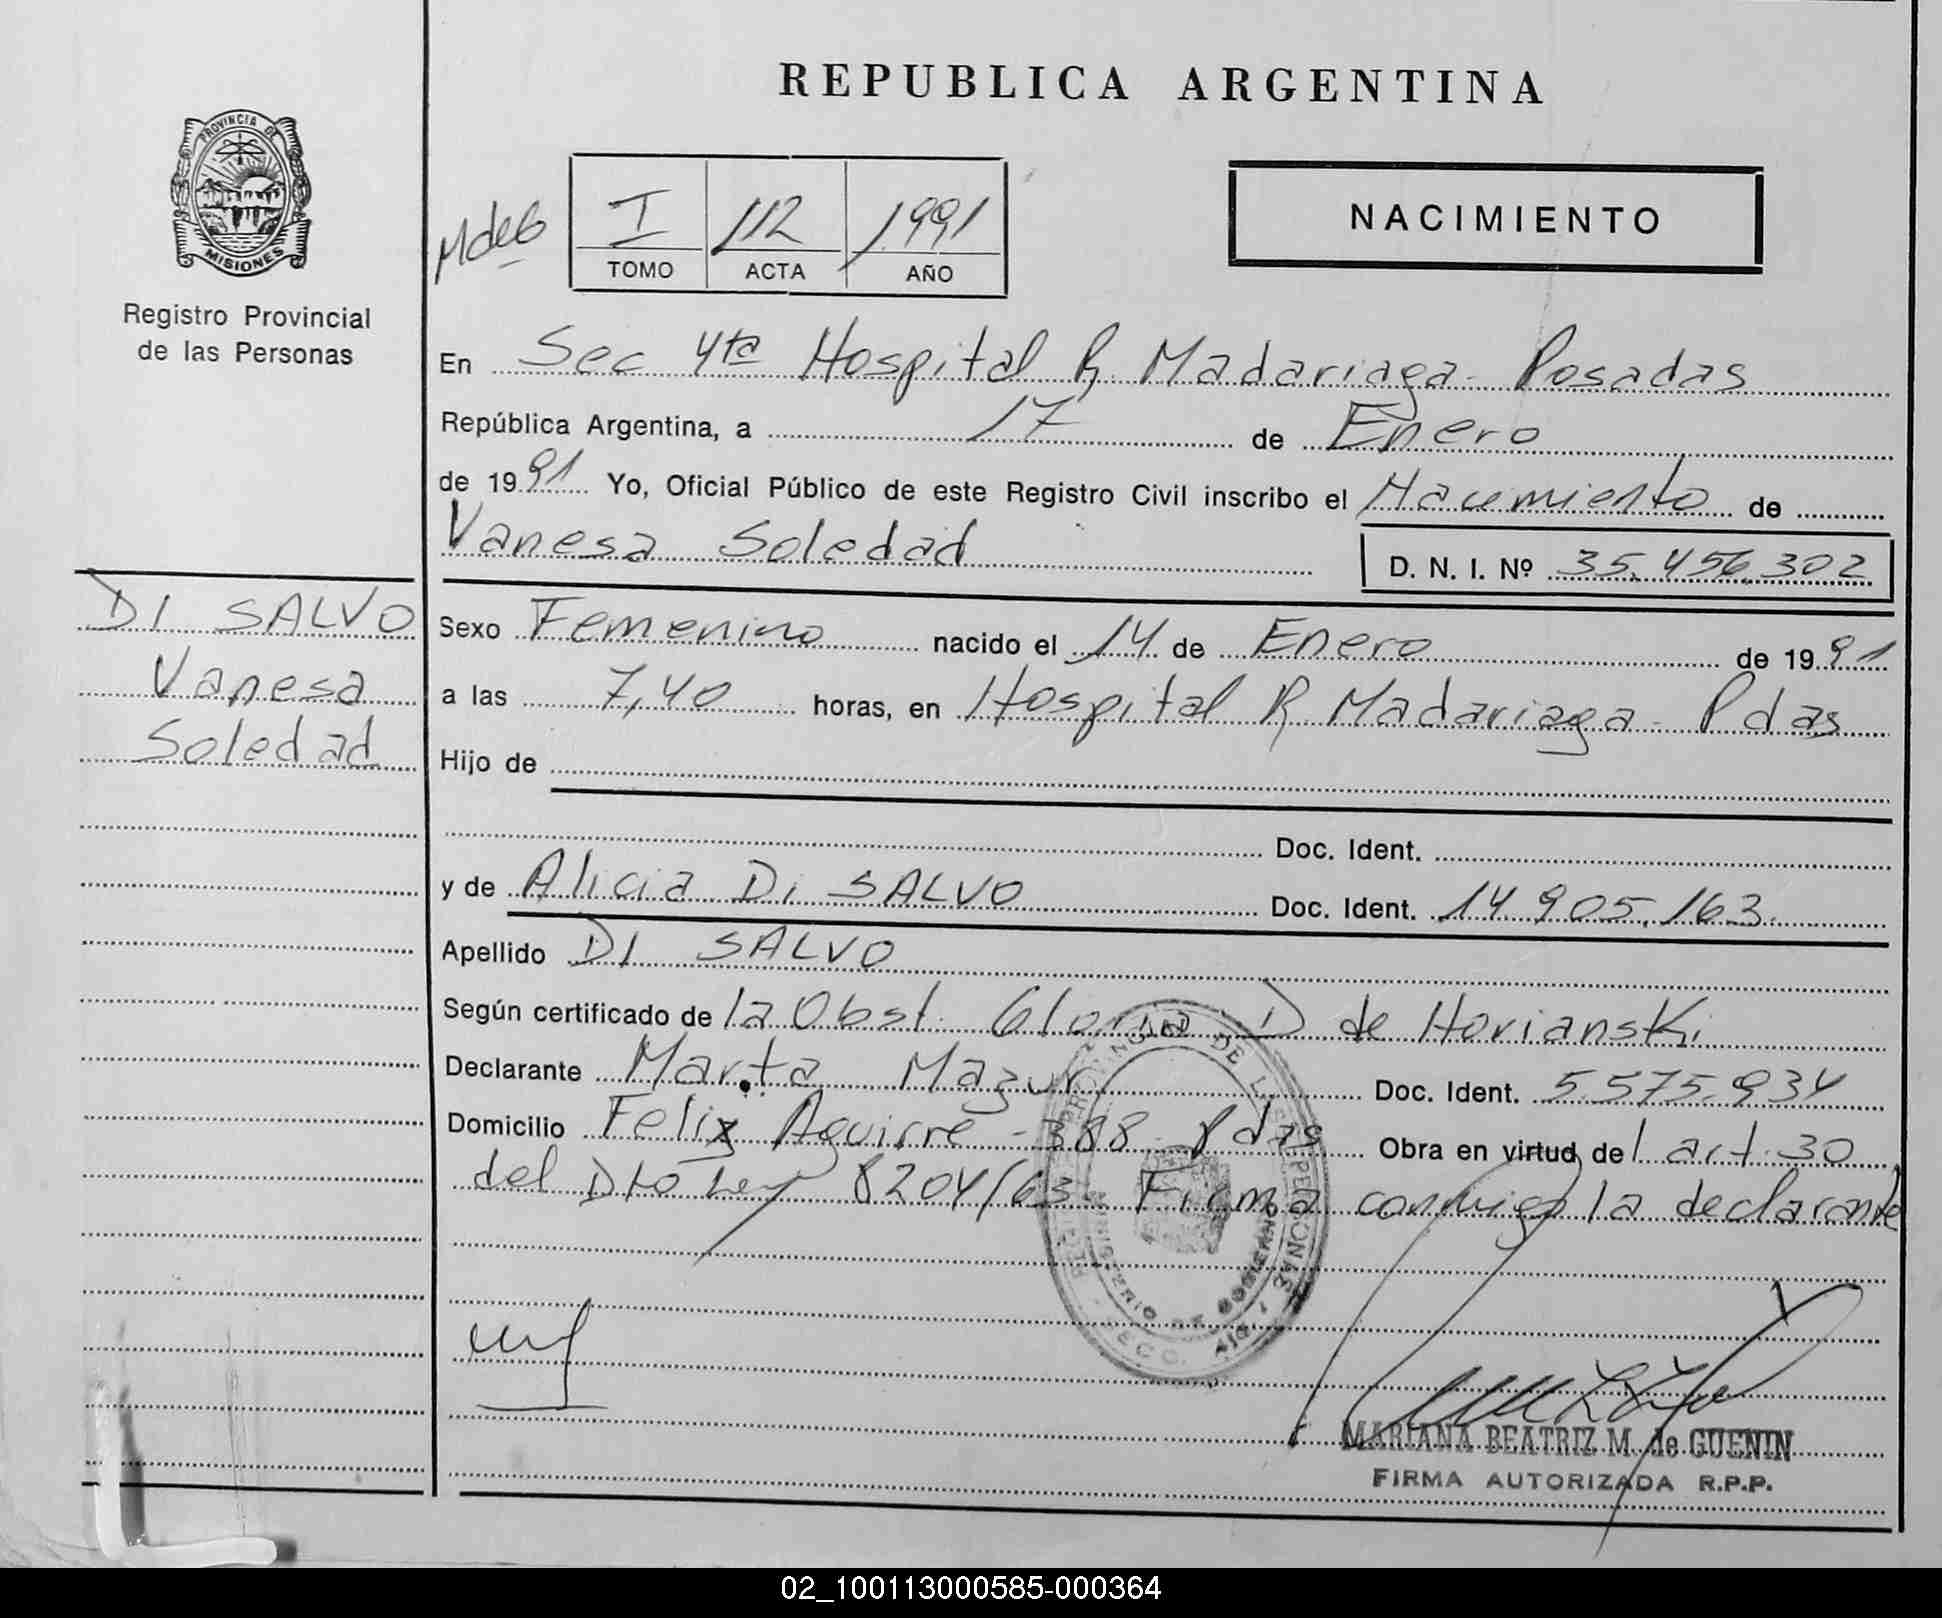 REPUBLICA ARGENTINA
PROVINCIA DE
MISIONES
Registro Provincial
de las Personas
MdeG
I 112 1991
TOMO ACTA AÑO
NACIMIENTO
En Sec 4ta Hospital R. Madariaga - Posadas
República Argentina, a 17 de Enero
de 1991 Yo, Oficial Público de este Registro Civil inscribo el Nacimiento de
Vanesa Soledad
D. N. I. Nº 35.456.302
DI SALVO
Vanesa
Soledad
Sexo Femenino nacido el 14 de Enero de 1991
a las 7,40 horas, en Hospital R Madariaga - Pdas
Hijo de
Doc. Ident.
y de Alicia Di SALVO Doc. Ident. 14.905.163.
Apellido DI SALVO
Según certificado de la Obst. Gloria D de Horianski
Declarante Marta Mazur Doc. Ident. 5.575.934
Domicilio Felix Aguirre - 388 - Pdas Obra en virtud del art. 30
del Dto Ley 8204/63. Firma conmigo la declarante
MINISTERIO DE GOBIERNO
MARIANA BEATRIZ M. de GUENIN
FIRMA AUTORIZADA R.P.P.
02_100113000585-000364